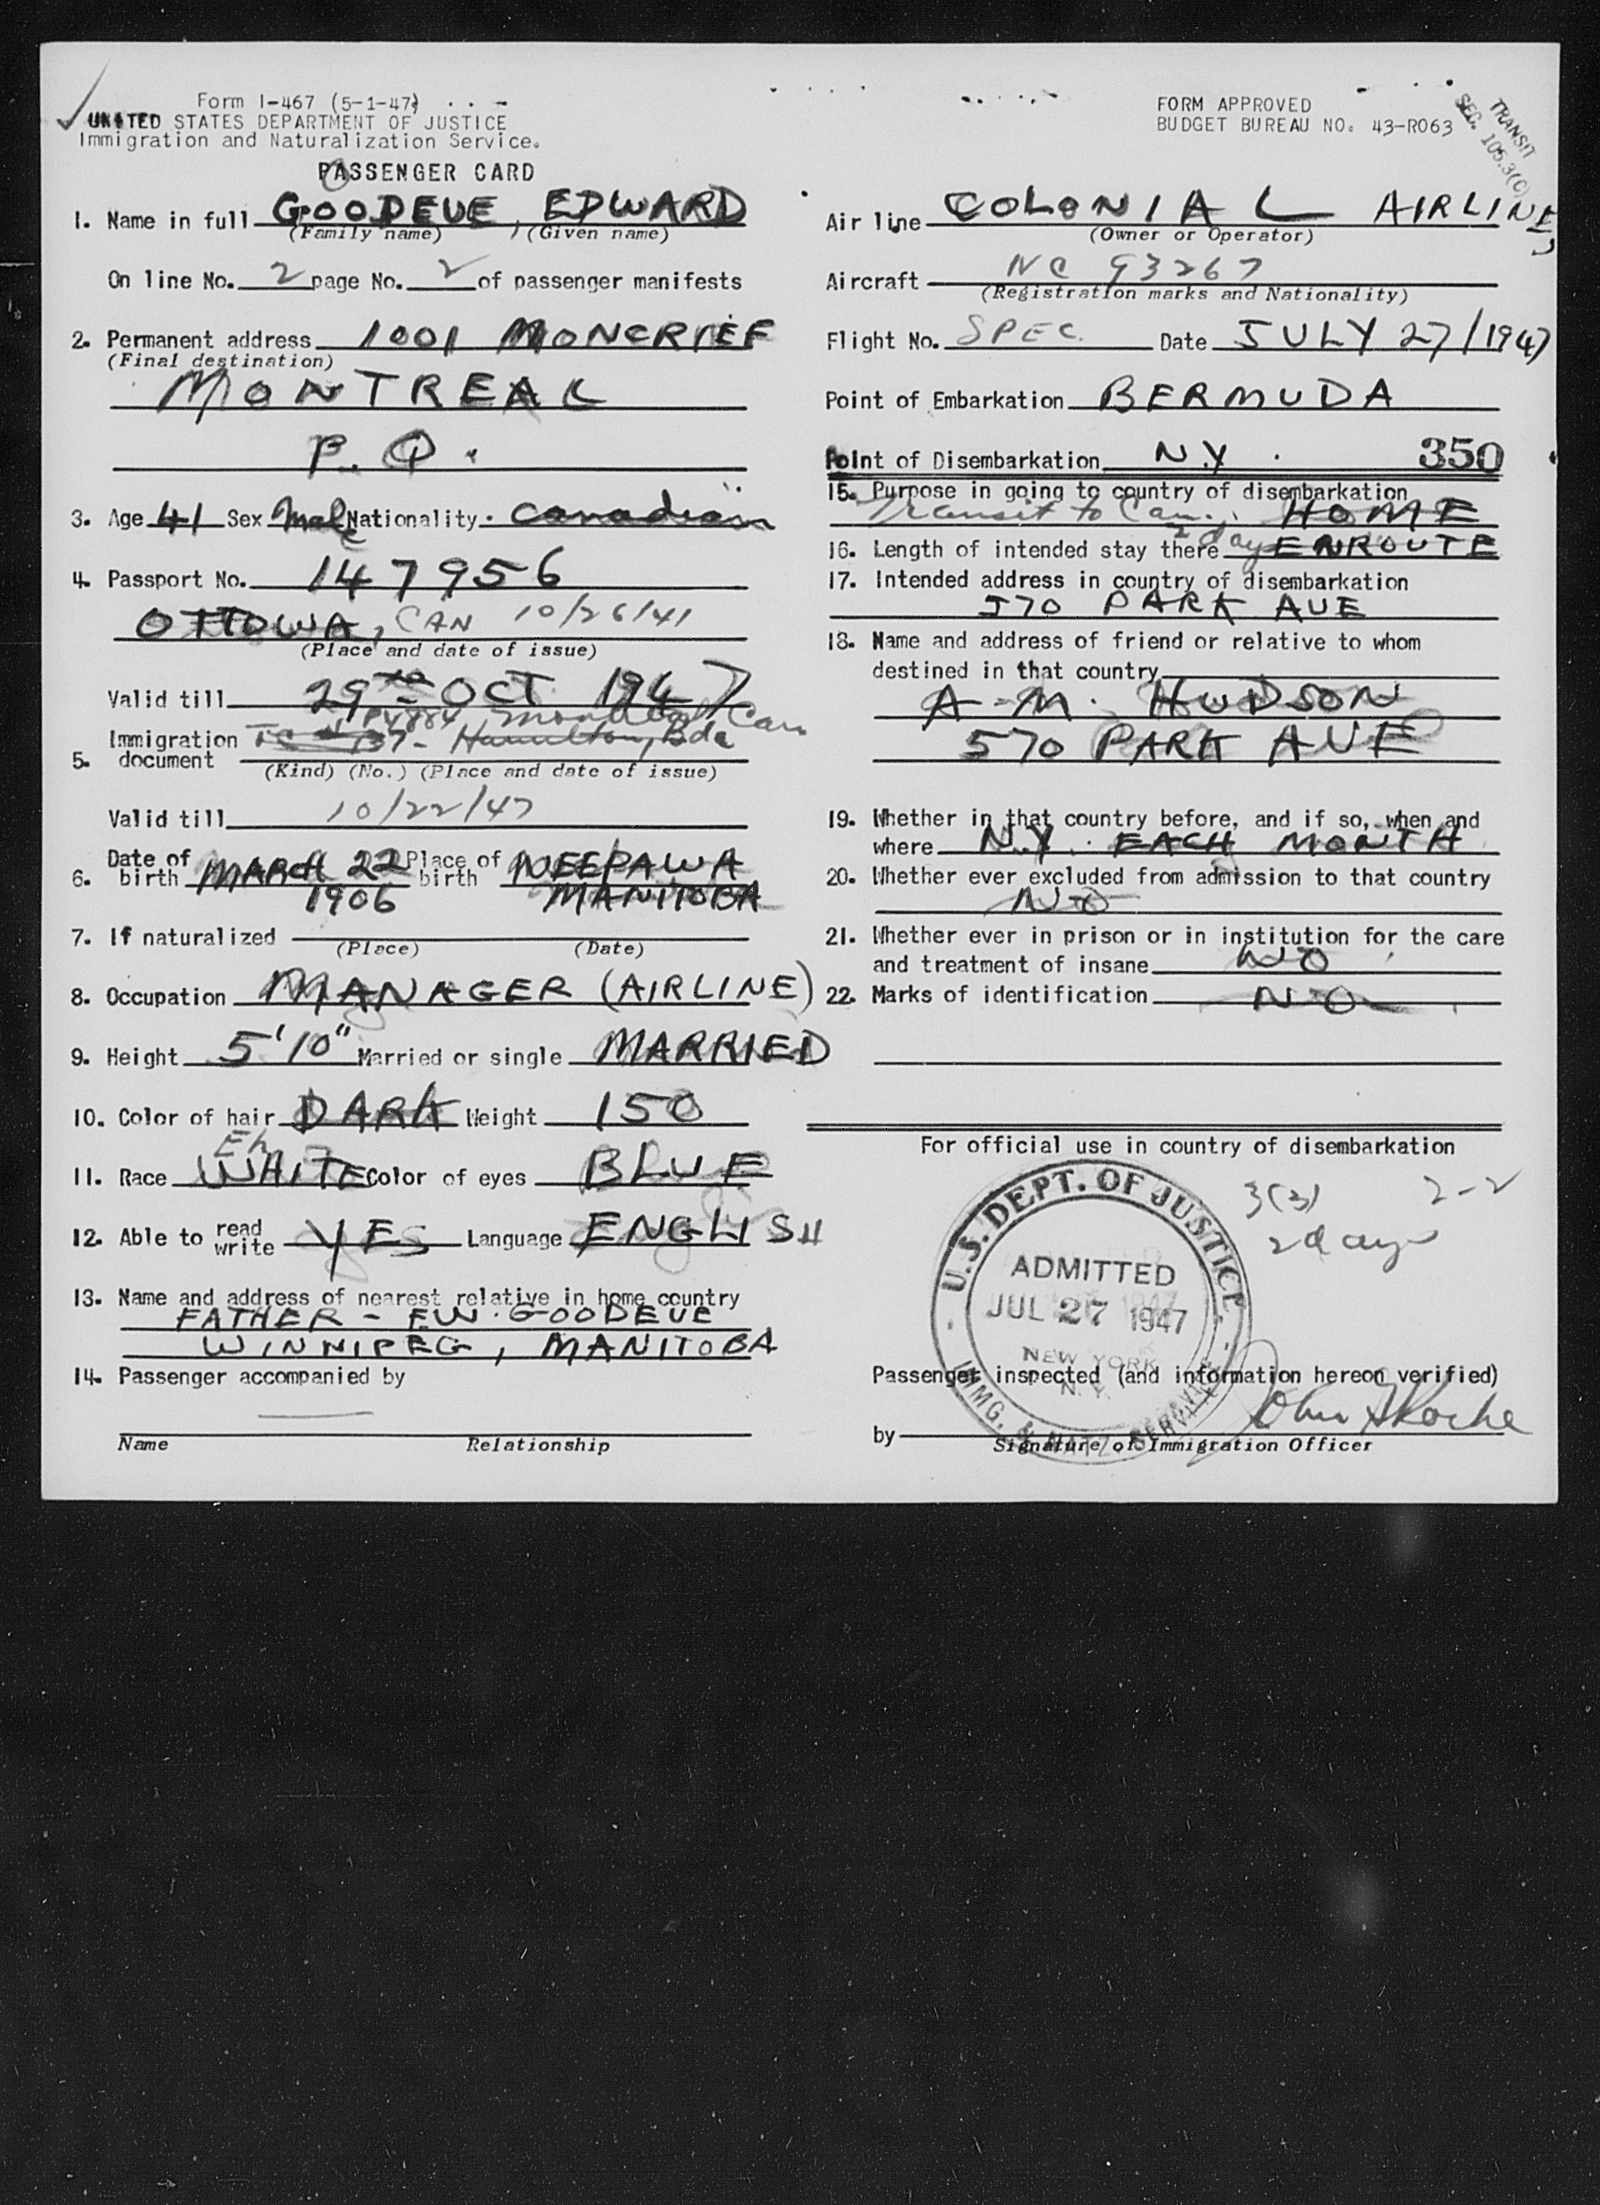 Form I-467 (5-1-47)
UNITED STATES DEPARTMENT OF JUSTICE
Immigration and Naturalization Service.
PASSENGER CARD
1. Name in full GOODEVE, EDWARD
(Family name) (Given name)
On line No. 2 page No. 2 of passenger manifests
2. Permanent address 1001 MONCRIEF
(Final destination)
MONTREAL
P. Q.
3. Age 41 Sex Male Nationality Canadian
4. Passport No. 147956
OTTOWA, CAN 10/26/41
(Place and date of issue)
Valid till 29 OCT 1947
P4884 Montreal Can
5. Immigration document 137- Hamilton, Bda
(Kind) (No.) (Place and date of issue)
Valid till 10/22/47
6. Date of birth MARCH 22 1906 Place of birth NEEPAWA MANITOBA
7. If naturalized
(Place) (Date)
8. Occupation MANAGER (AIRLINE)
9. Height 5'10" Married or single MARRIED
10. Color of hair DARK Weight 150
Eh
11. Race WHITE Color of eyes BLUE
12. Able to read write YES Language ENGLISH
13. Name and address of nearest relative in home country
FATHER - E.W. GOODEVE
WINNIPEG, MANITOBA
14. Passenger accompanied by
Name Relationship
FORM APPROVED
BUDGET BUREAU NO. 43-R063
TRANSIT
SEC. 105.3(C)
Air line COLONIAL AIRLINES
(Owner or Operator)
Aircraft NC 93267
(Registration marks and Nationality)
Flight No. SPEC. Date JULY 27/1947
Point of Embarkation BERMUDA
Point of Disembarkation N.Y. 350
15. Purpose in going to country of disembarkation
Transit to Can. HOME
16. Length of intended stay there 2 days ENROUTE
17. Intended address in country of disembarkation
570 PARK AVE
18. Name and address of friend or relative to whom
destined in that country
A. M. HUDSON
570 PARK AVE
19. Whether in that country before, and if so, when and
where N.Y. EACH MONTH
20. Whether ever excluded from admission to that country
NO
21. Whether ever in prison or in institution for the care
and treatment of insane NO
22. Marks of identification NO
For official use in country of disembarkation
3(3) 2-2
2 days
U.S. DEPT. OF JUSTICE
ADMITTED
JUL 27 1947
NEW YORK
N.Y.
IMMG. & NATZ. SERVICE
Passenger inspected (and information hereon verified)
by John Roche
Signature of Immigration Officer